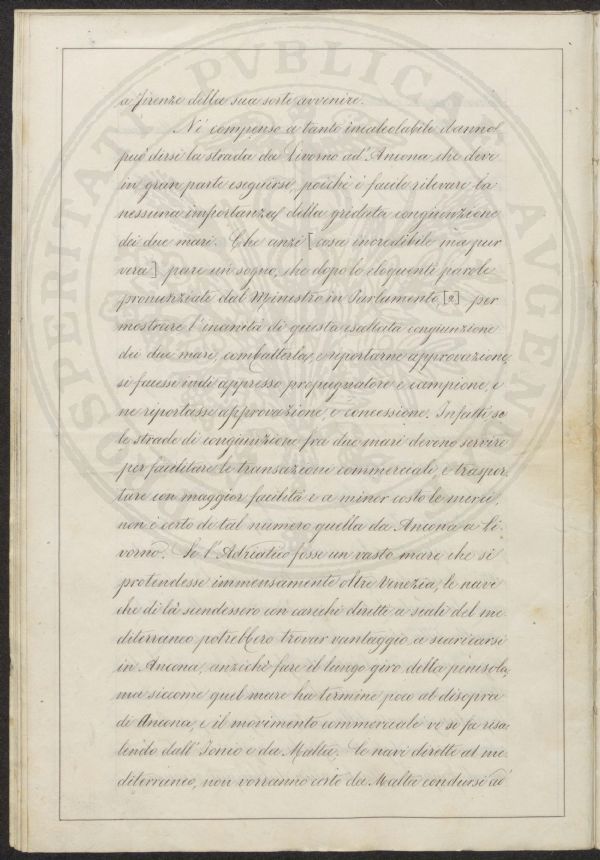 a Firenze della sua sorte avvenire.
Nè compenso a tanto incalcolabile danno
può dirsi la strada da Livorno ad Ancona, che deve
in gran parte eseguirsi, poichè è facile rilevare la
nessuna importanza della gridata congiunzione
dei due mari. Che anzi [cosa incredibile ma pur
vera] pare un sogno, che dopo le eloquenti parole
pronunziate dal Ministro in Parlamento, [a] per
mostrare l'inanità di questa esaltata congiunzione
dei due mari, combatterla, e riportarne approvazione,
si facesse indi appresso propugnatore e campione, e
ne riportasse approvazione, e concessione. Infatti, se
le strade di congiunzione fra due mari devono servire
per facilitare le transazioni commerciali, e traspor-
tare con maggior facilità e a minor costo le merci,
non è certo di tal numero quella da Ancona a Li-
vorno. Se l'Adriatico fosse un vasto mare che si
protendesse immensamente oltre Venezia, le navi
che di là scendessero con carichi diretti a scali del me-
diterraneo potrebbero trovar vantaggio a scaricarsi
in Ancona, anzichè fare il lungo giro della penisola,
ma siccome quel mare ha termine poco al disopra
di Ancona, e il movimento commerciale vi si fa risa-
lendo dall'Ionio e da Malta, le navi dirette al me-
diterraneo, non vorranno certo da Malta condursi ad
PROSPERITATI PVBLICAE AVGENDAE